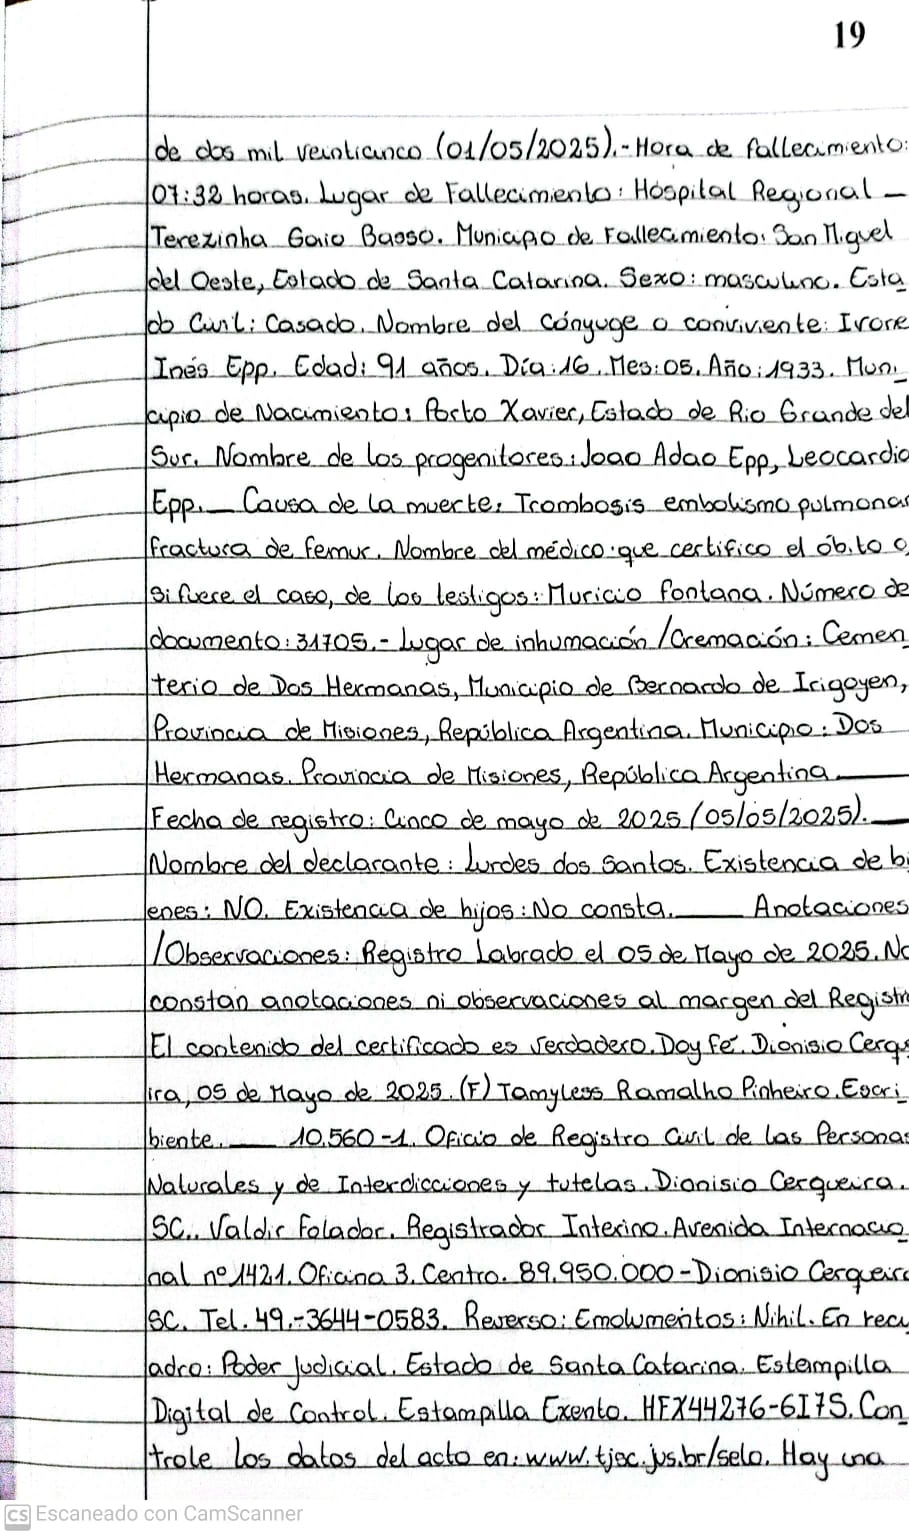 19
de dos mil veinticinco (01/05/2025).- Hora de fallecimiento:
07:32 horas. Lugar de Fallecimiento: Hospital Regional —
Terezinha Gaio Basso. Municipio de Fallecimiento: San Miguel
del Oeste, Estado de Santa Catarina. Sexo: masculino. Esta_
do Civil: Casado. Nombre del Cónyuge o conviviente: Ivone
Inés Epp. Edad: 91 años. Día: 16. Mes: 05. Año: 1933. Muni_
cipio de Nacimiento: Porto Xavier, Estado de Rio Grande del
Sur. Nombre de los progenitores: Joao Adao Epp, Leocardia
Epp.— Causa de la muerte: Trombosis embolismo pulmonar
fractura de femur. Nombre del médico que certifico el óbito o,
si fuere el caso, de los testigos: Muricio Fontana. Número de
documento: 31705.- Lugar de inhumación / Cremación: Cemen_
terio de Dos Hermanas, Municipio de Bernardo de Irigoyen,
Provincia de Misiones, República Argentina. Municipio: Dos
Hermanas. Provincia de Misiones, República Argentina ——
Fecha de registro: Cinco de mayo de 2025 (05/05/2025). —
Nombre del declarante: Lurdes dos Santos. Existencia de bi
enes: NO. Existencia de hijos: No consta. —— Anotaciones
/Observaciones: Registro Labrado el 05 de Mayo de 2025. No
constan anotaciones ni observaciones al margen del Registro
El contenido del certificado es verdadero. Doy fé. Dionisio Cerque
ira, 05 de Mayo de 2025. (F) Tamyless Ramalho Pinheiro. Escri_
biente. — 10.560-1. Oficio de Registro Civil de las Personas
Naturales y de Interdicciones y tutelas. Dionisio Cerqueira.
SC.. Valdir Folador. Registrador Interino. Avenida Internacio_
nal nº 1421. Oficina 3. Centro. 89.950.000 - Dionisio Cerqueira
SC. Tel. 49.-3644-0583. Reverso: Emolumentos: Nihil. En recu_
adro: Poder Judicial. Estado de Santa Catarina. Estampilla
Digital de Control. Estampilla Exento. HFX44276-6I7S. Con_
trole los datos del acto en: www.tjsc.jus.br/selo. Hay una
CS Escaneado con CamScanner